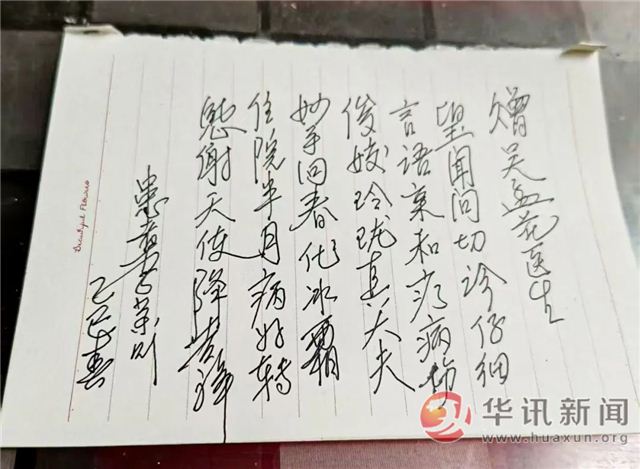 赠吴孟花医生
望闻问切诊仔细
言语柔和疗病
俊姣玲珑真大夫
妙手回春化冰霜
住院半月病好转
感谢天使降吉祥
患者
乙巳春
华讯新闻
www.huaxun.org